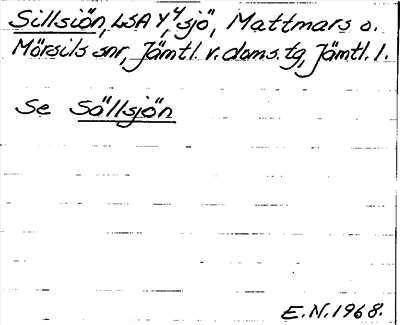 Sillsiön, LSA Y 4, sjö, Mattmars o.
Mörsils snr, Jämtl. v. doms. tg, Jämtl. l.
Se Sällsjön
E.N. 1968.